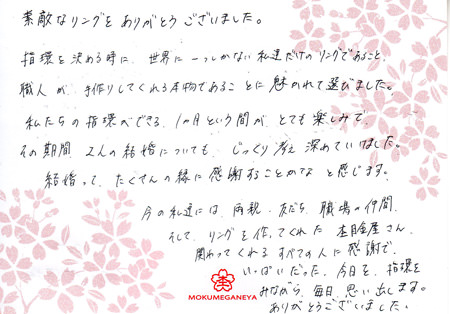 素敵なリングを ありがとう ございました。
指環を決める時に、世界に一つしかない私達だけのリングであること、
職人が、手作りしてくれる本物であることに魅かれて選びました。
私たちの指環ができる、1ヵ月という間が、とても楽しみで、
その期間 2人の結婚についても、じっくり考え 深めていけました。
結婚って、たくさんの縁に感謝することかな と感じます。
今の私達には、両親、友だち、職場の仲間、
そして、リングを作ってくれた 杢目金屋さん、
関わってくれる すべての人に感謝で、
いっぱいだった、今日を、指環を
みながら、毎日、思い出します。
ありがとうございました。
MOKUMEGANEYA